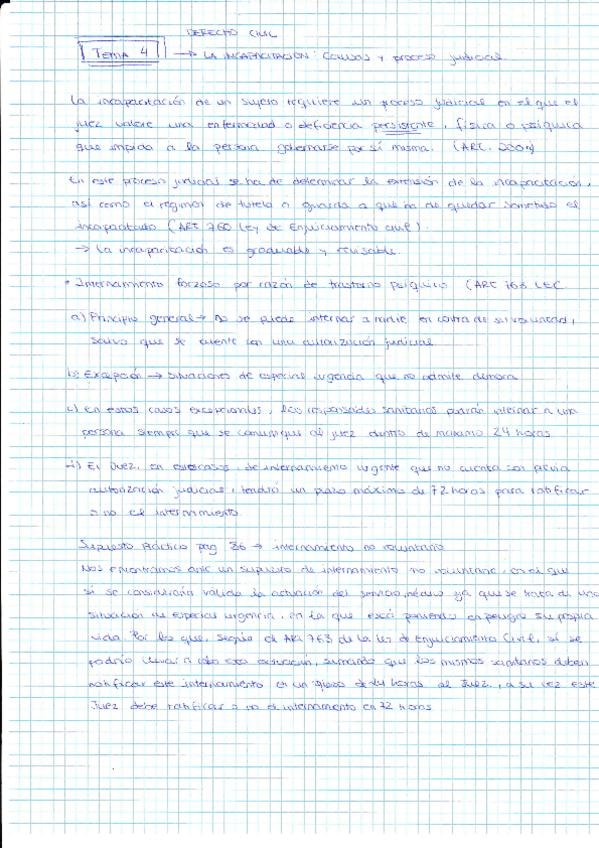 DERECHO CIVIL
TEMA 4 → LA INCAPACITACIÓN: Causas y proceso judicial
La incapacitación de un sujeto requiere un proceso judicial en el que el
juez valore una enfermedad o deficiencia persistente, física o psíquica
que impida a la persona gobernarse por sí misma. (ART. 200)
En este proceso judicial se ha de determinar la extensión de la incapacitación,
así como el régimen de tutela o guarda a que ha de quedar sometido el
incapacitado (ART 760 Ley de Enjuiciamiento Civil).
→ La incapacitación es graduable y revisable.
• Internamiento forzoso por razón de trastorno psíquico (ART 763 LEC
a) Principio general → no se puede internar a nadie en contra de su voluntad,
salvo que se cuente con una autorización judicial
b) Excepción → situaciones de especial urgencia que no admite demora
c) en estos casos excepcionales, los responsables sanitarios podrán internar a una
persona siempre que se comunique al juez dentro de máximo 24 horas
d) El Juez, en casos de internamiento urgente que no cuenta con previa
autorización judicial, tendrá un plazo máximo de 72 horas para ratificar
o no el internamiento
Supuesto Práctico pag 86 → internamiento no voluntario
Nos encontramos ante un supuesto de internamiento no voluntario, en el que
si se consideraría valida la actuación del servicio médico ya que se trata de una
situación de especial urgencia, en la que está poniendo en peligro su propia
vida. Por lo que, según el ART 763 de la Ley de Enjuiciamiento Civil, si se
podría llevar a cabo esta actuación, sumando que los mismos sanitarios deben
notificar este internamiento en un plazo de 24 horas al Juez, a su vez este
Juez debe ratificar o no el internamiento en 72 horas